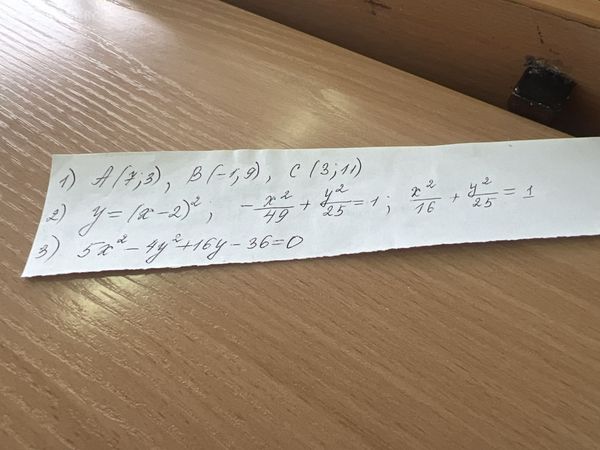 1) A(7;3), B(-1;9), C(3;11)
2) y=(x-2)², -x²/49 + y²/25 = 1; x²/16 + y²/25 = 1
3) 5x²-4y²+16y-36=0